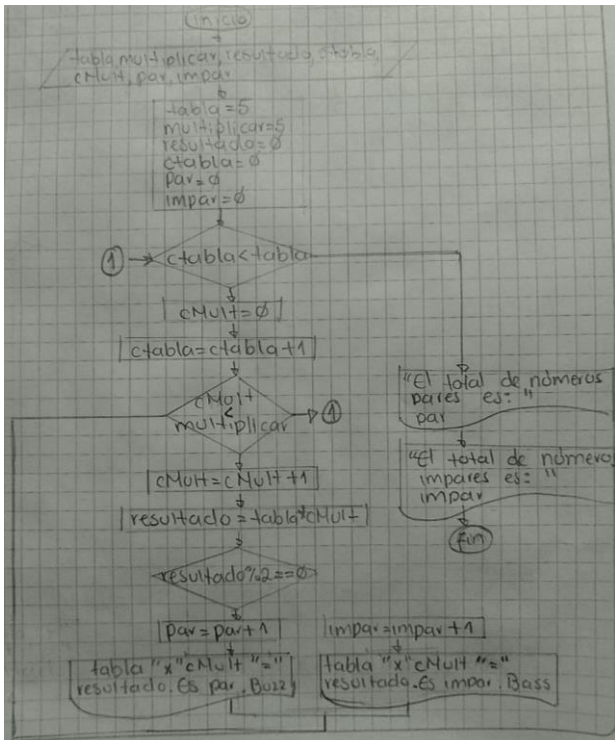 inicio
tabla, multiplicar, resultado, ctabla,
cMult, par, impar
tabla=5
multiplicar=5
resultado=0
ctabla=0
par=0
impar=0
1
ctabla<tabla
cMult=0
ctabla=ctabla+1
cMult
<
multiplicar
1
cMult=cMult+1
resultado=tabla*cMult
resultado%2==0
par=par+1
tabla "x" cMult "="
resultado. Es par. Buzz
impar=impar+1
tabla "x" cMult "="
resultado. Es impar. Bass
"El total de números
pares es: "
par
"El total de número
impares es: "
impar
fin